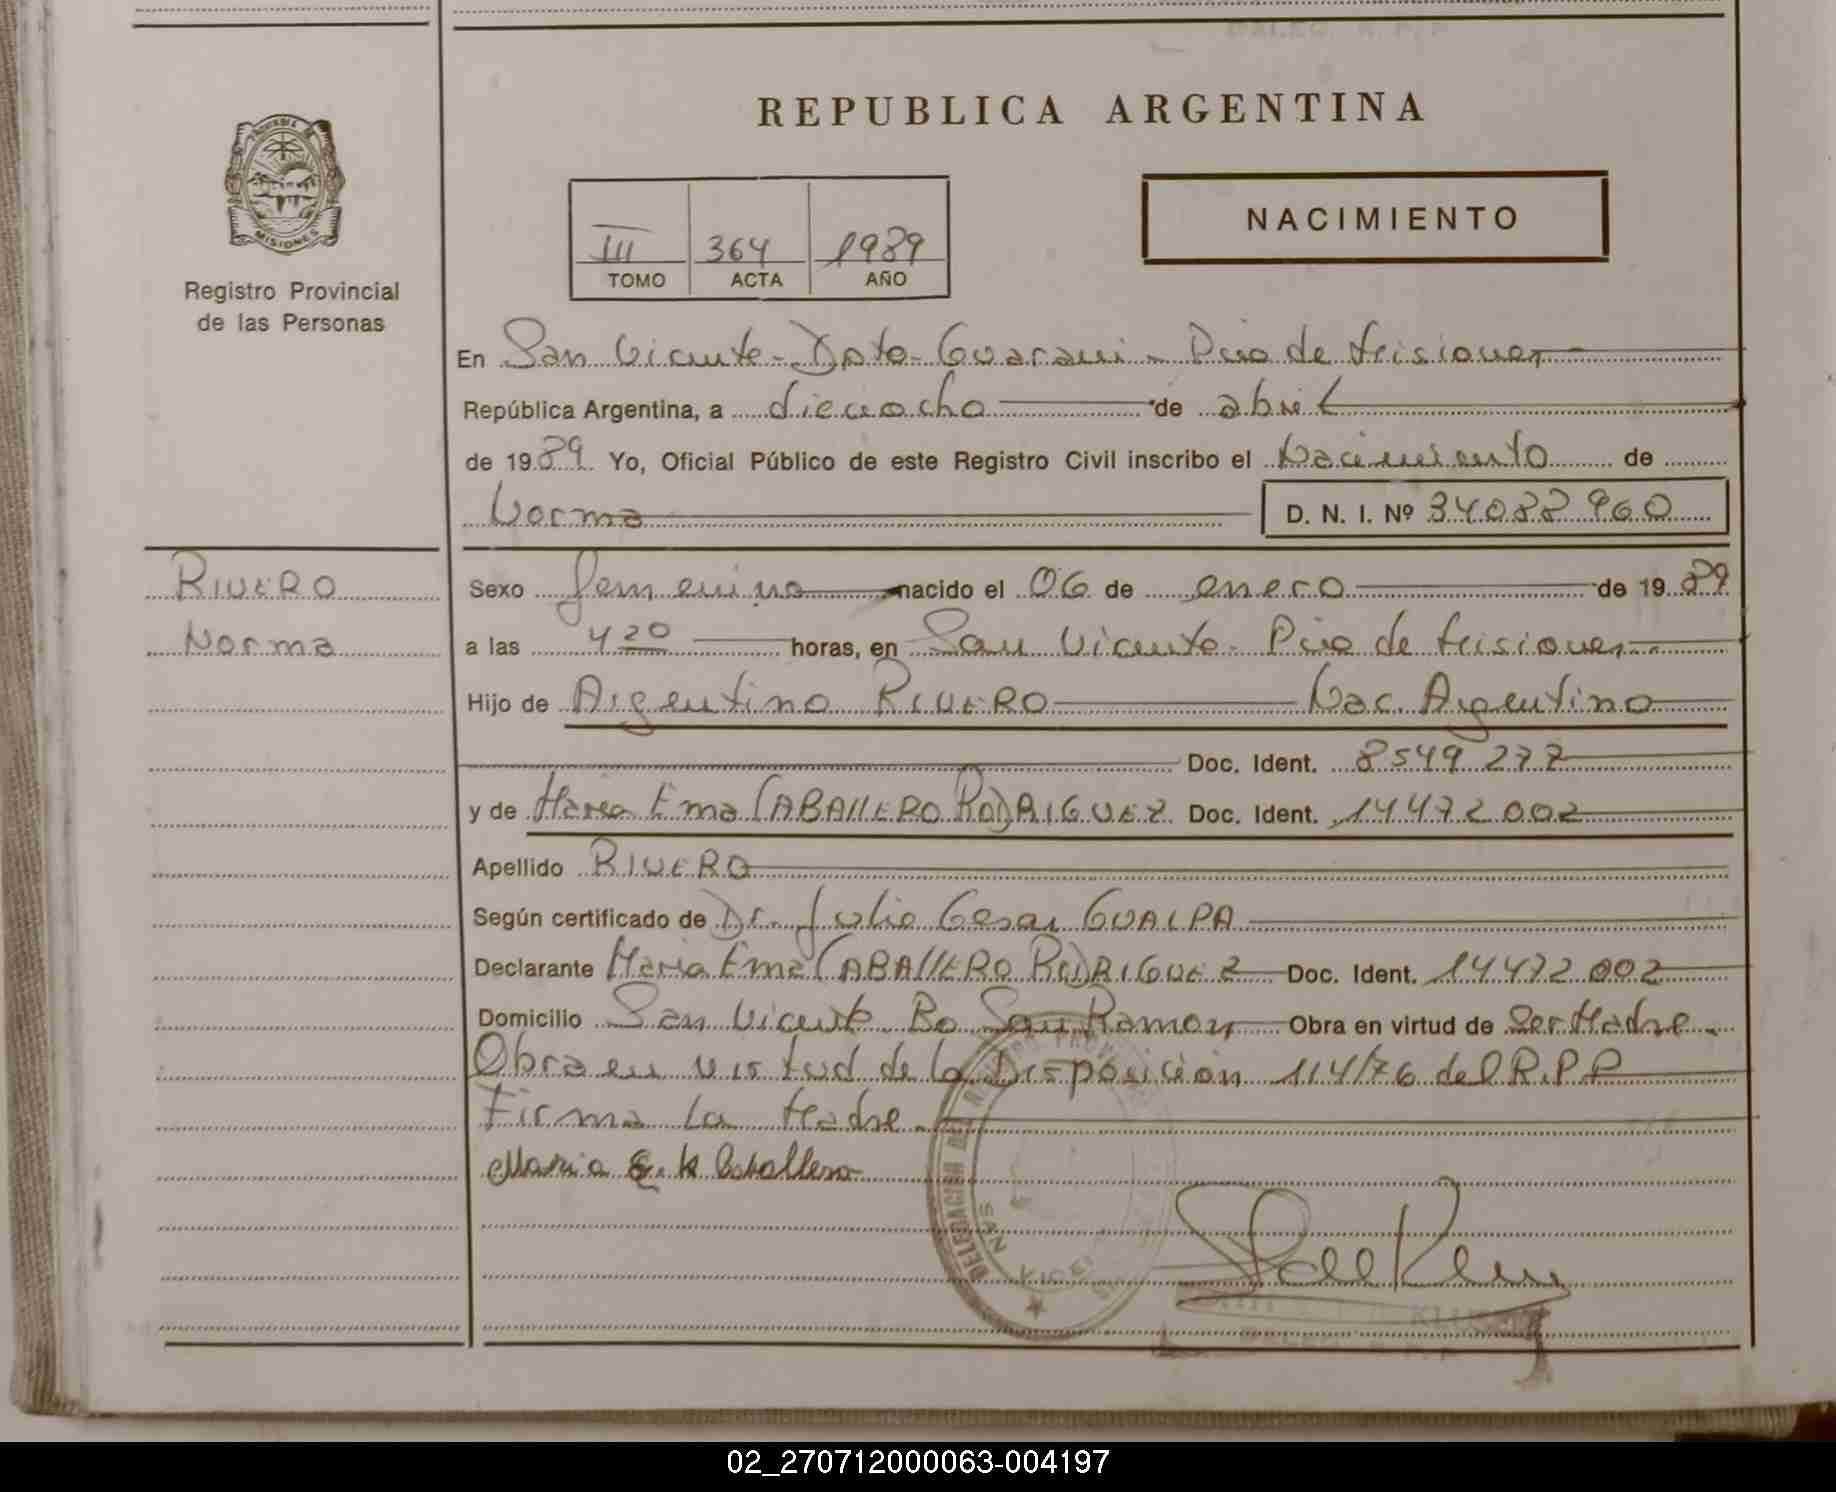 REPUBLICA ARGENTINA
NACIMIENTO
III 364 1989
TOMO ACTA AÑO
MISIONES
Registro Provincial
de las Personas
En San Vicente - Dpto - Guarani - Pcia de Misiones
República Argentina, a dieciocho de abril
de 1989. Yo, Oficial Público de este Registro Civil inscribo el Nacimiento de
Norma D. N. I. Nº 34022960
RIVERO
Norma
Sexo femenino nacido el 06 de enero de 1989
a las 4 20 horas, en San Vicente - Pcia de Misiones
Hijo de Argentino RIVERO Nac. Argentino
Doc. Ident. 8549 277
y de Maria Ema CABALLERO RODRIGUEZ Doc. Ident. 14472 002
Apellido RIVERO
Según certificado de Dr. Julio Cesar GUALPA
Declarante Maria Ema CABALLERO RODRIGUEZ Doc. Ident. 14472 002
Domicilio San Vicente Bo San Ramon Obra en virtud de Ser Madre -
Obra en virtud de la Disposición 114/76 del R.P.P
Firma La Madre.
Maria E. k Caballero
DELEGACION DEL
SAN
02_270712000063-004197